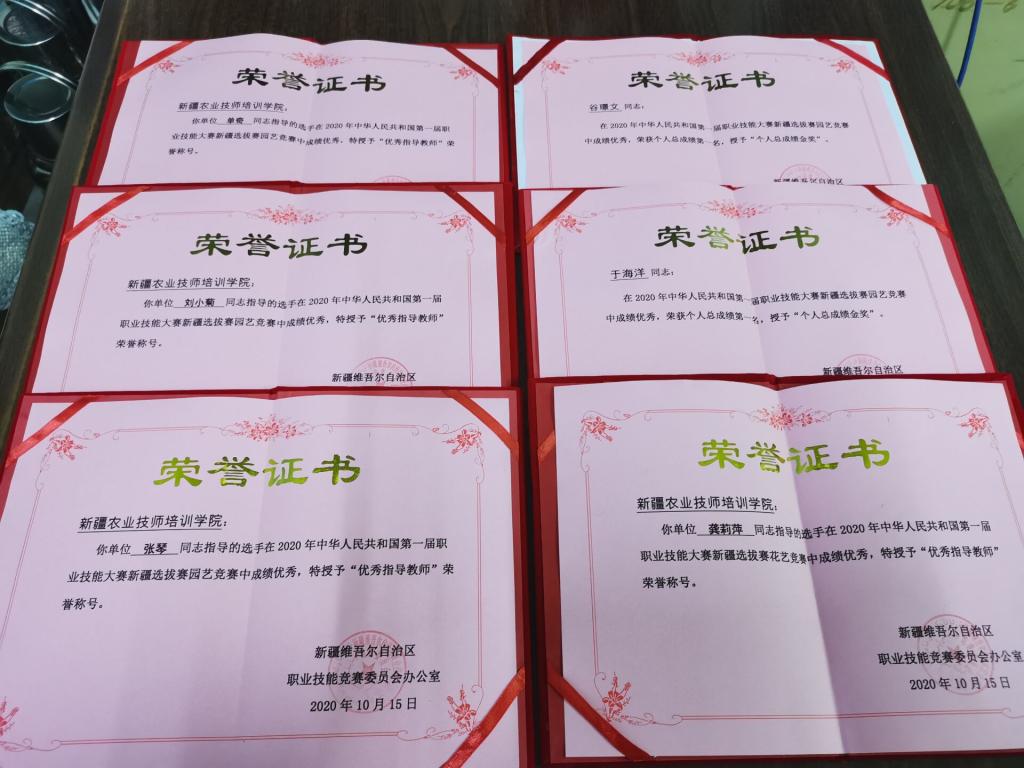 荣誉证书
新疆农业技师培训学院:
你单位 单奇 同志指导的选手在2020年中华人民共和国第一届职
业技能大赛新疆选拔赛园艺竞赛中成绩优秀,特授予“优秀指导教师”荣
誉称号。
荣誉证书
谷璟文 同志:
在2020年中华人民共和国第一届职业技能大赛新疆选拔赛园艺竞赛
中成绩优秀,荣获个人总成绩第一名,授予“个人总成绩金奖”。
新疆维吾尔自治区
荣誉证书
新疆农业技师培训学院:
你单位 刘小菊 同志指导的选手在2020年中华人民共和国第一届
职业技能大赛新疆选拔赛园艺竞赛中成绩优秀,特授予“优秀指导教师”
荣誉称号。
新疆维吾尔自治区
荣誉证书
于海洋 同志:
在2020年中华人民共和国第一届职业技能大赛新疆选拔赛园艺竞赛
中成绩优秀,荣获个人总成绩第一名,授予“个人总成绩金奖”。
新疆维吾尔自治区
荣誉证书
新疆农业技师培训学院:
你单位 张琴 同志指导的选手在2020年中华人民共和国第一届职
业技能大赛新疆选拔赛园艺竞赛中成绩优秀,特授予“优秀指导教师”荣
誉称号。
新疆维吾尔自治区
职业技能竞赛委员会办公室
2020年10月15日
荣誉证书
新疆农业技师培训学院:
你单位 龚莉萍 同志指导的选手在2020年中华人民共和国第一届
职业技能大赛新疆选拔赛花艺竞赛中成绩优秀,特授予“优秀指导教师”
荣誉称号。
新疆维吾尔自治区
职业技能竞赛委员会办公室
2020年10月15日